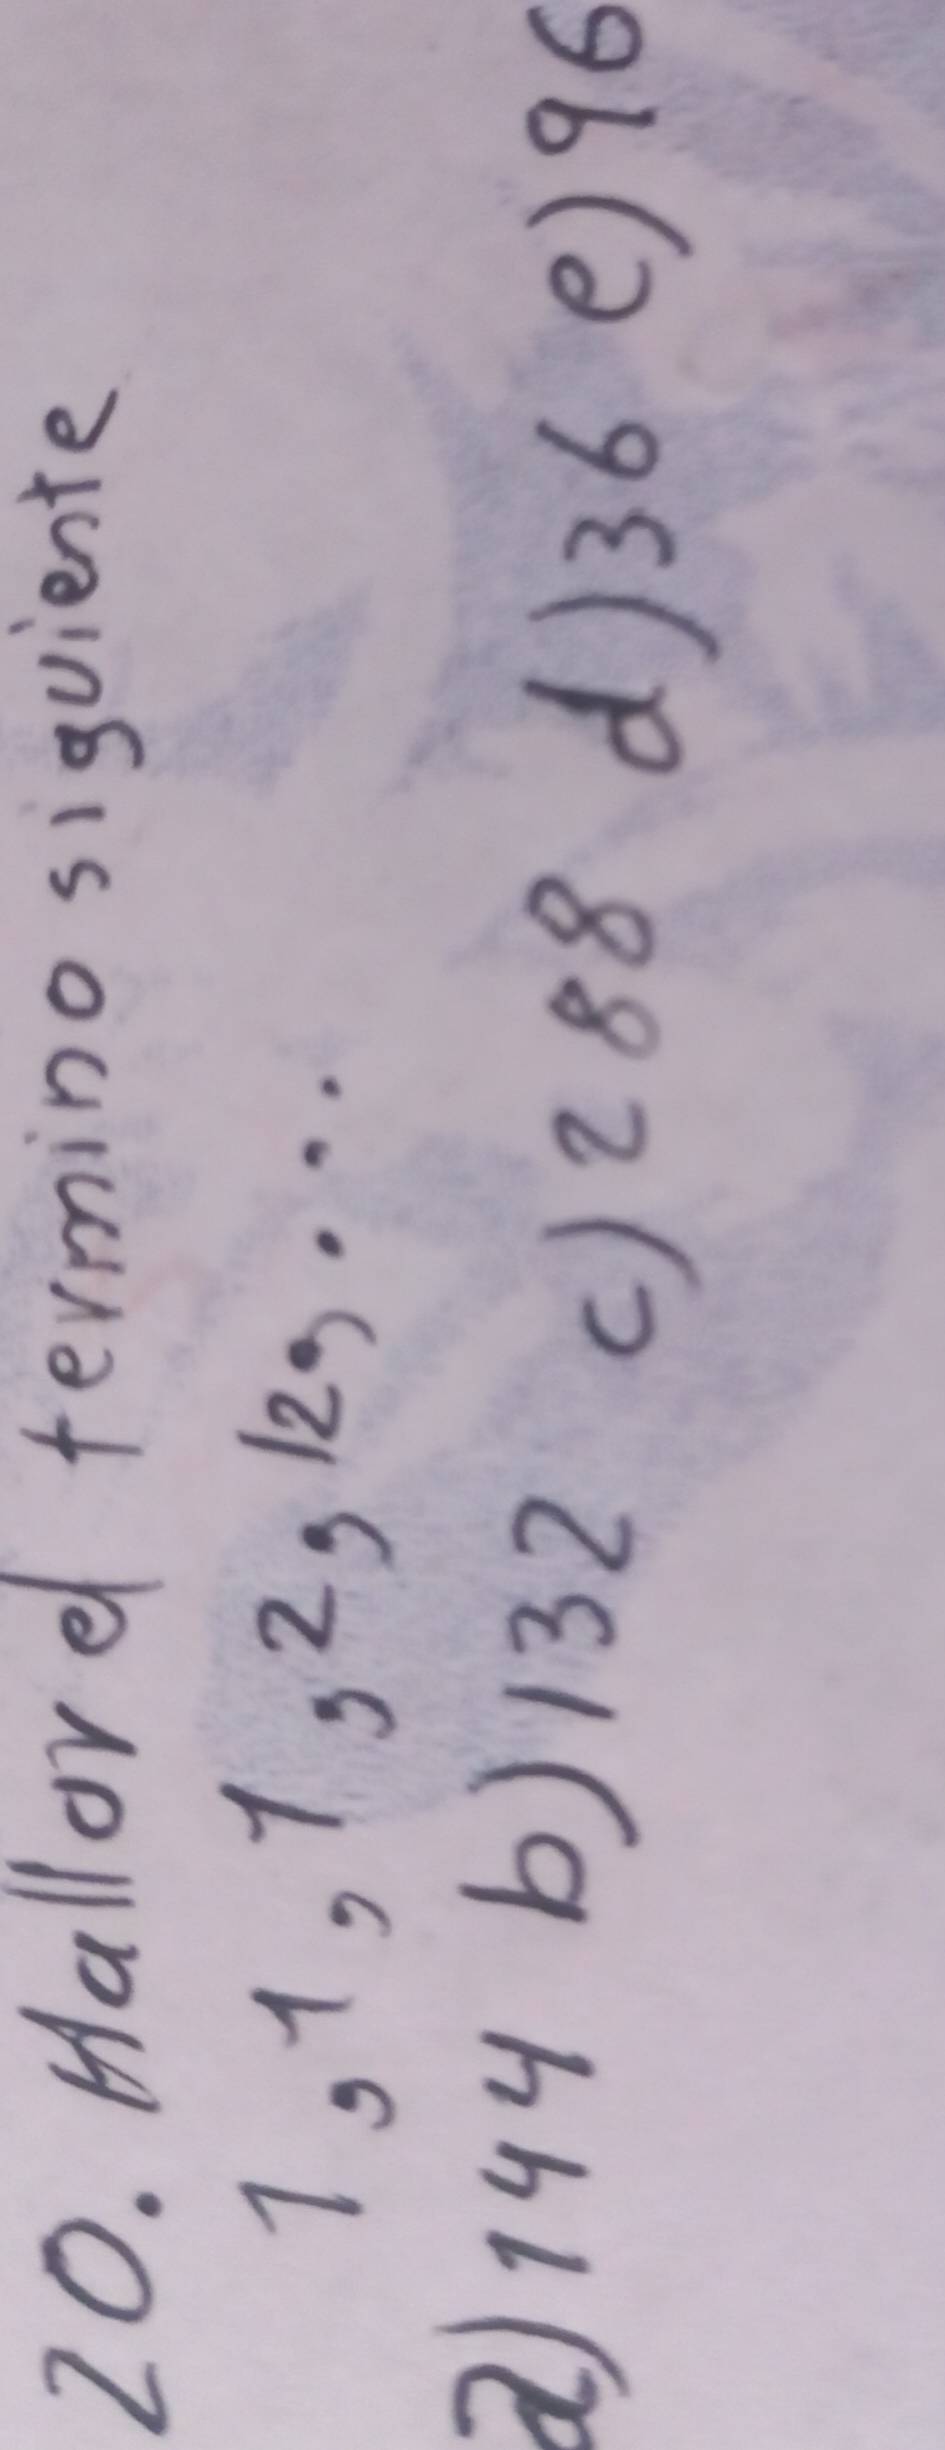 20. Hallar el termino siguiente
1, 1, 1, 2, 12, ...
a) 144 b) 132 c) 288 d) 36 e) 96